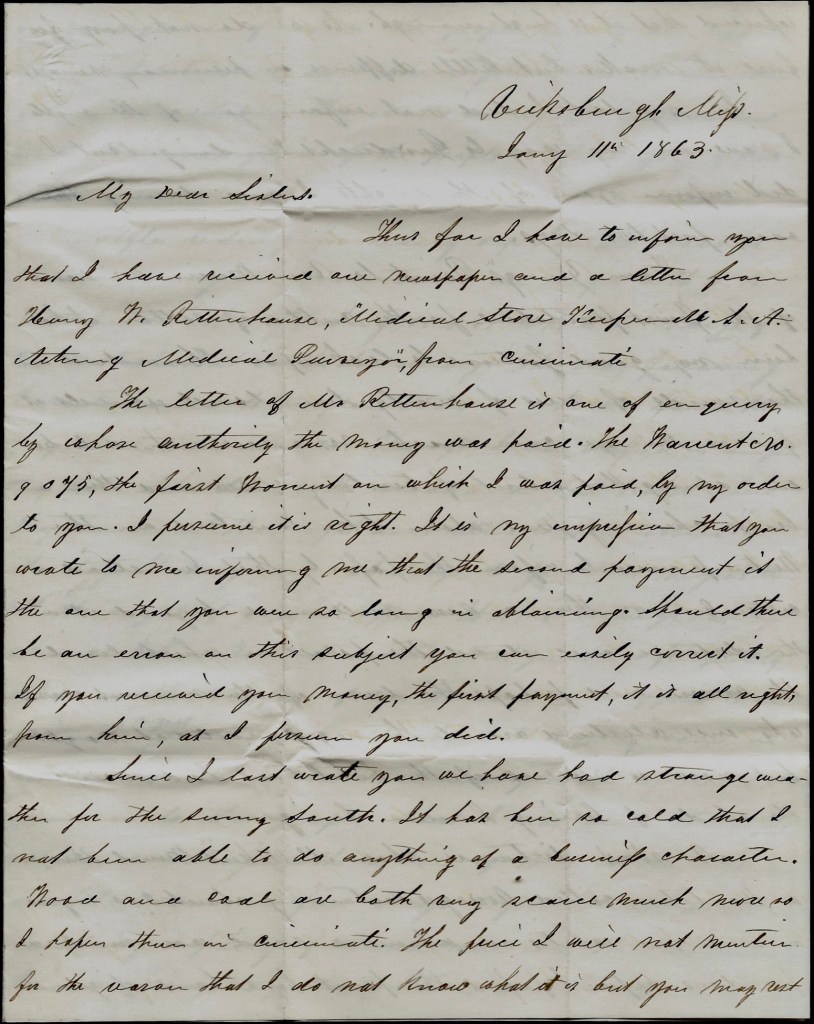 Vicksburgh Miss.
Jany 11th 1863.
My Dear Sisters.
Thus far I have to inform you
that I have received one newspaper and a letter from
Henry N. Rittenhouse, "Medical Store Keeper U. S. A.
Acting Medical Purveyor", from Cincinnati
The letter of Mr Rittenhouse is one of enquiry
by whose authority the money was paid. The Warrent No.
9075, the first Warrent on which I was paid, by my order
to you. I persume it is right. It is my impression that you
wrote to me informing me that the second payment is
the one that you were so long in obtaining. Should there
be an error on this subject you can easily correct it.
If you received your money, the first payment, it is all right,
from him, as I persume you did.
Since I last wrote you we have had strange wea-
ther for the sunny South. It has been so cold that I
not been able to do anything of a business character.
Wood and coal are both very scarce much more so
I hope than in Cincinnati. The price I will not mention
for the reason that I do not know what it is but you may rest